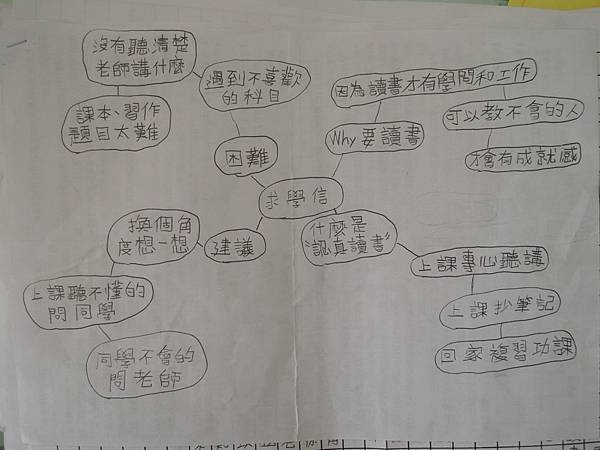 沒有聽清楚
老師講什麼
遇到不喜歡
的科目
課本、習作
題目太難
困難
因為讀書才有學問和工作
可以教不會的人
Why要讀書
才會有成就感
求學信
換個角
度想一想
建議
什麼是
"認真讀書"
上課專心聽講
上課聽不懂的
問同學
上課抄筆記
同學不會的
問老師
回家複習功課